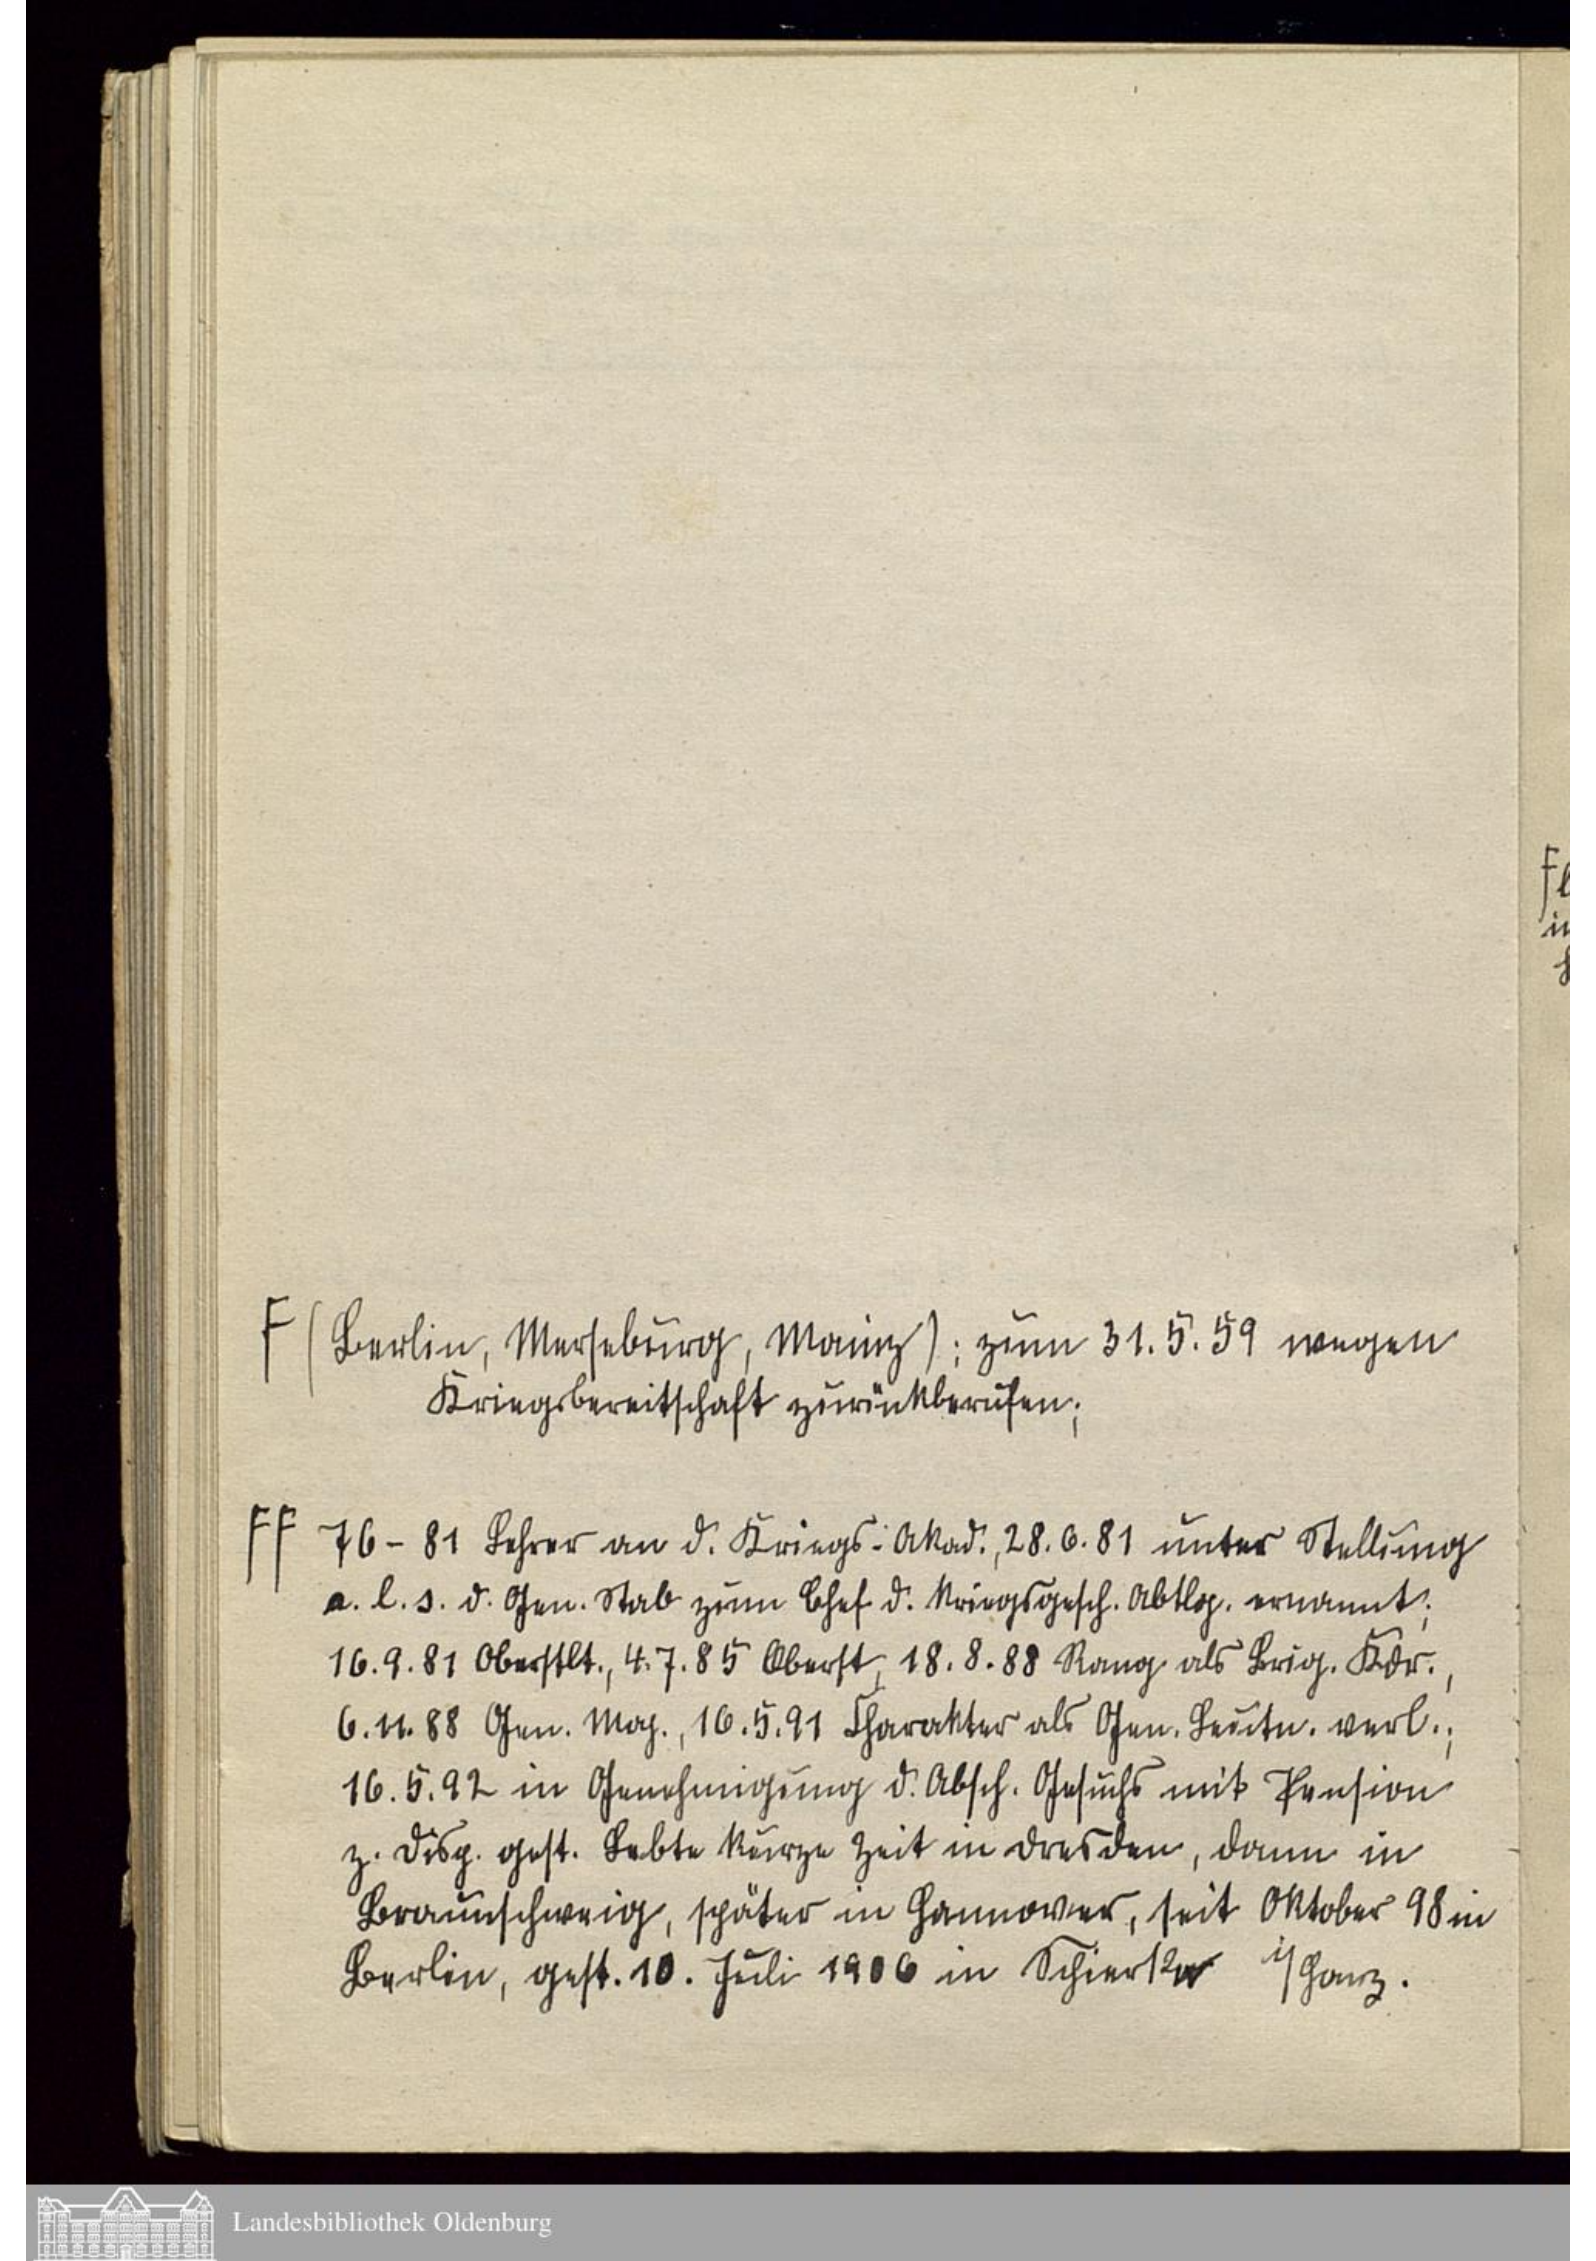 F (Berlin, Merseburg, Mainz); zum 31.5.59 wegen
Kriegsbereitschaft zurückberufen;
FF 76-81 Lehrer an d. Kriegs-Akad., 28.6.81 unter Stellung
a. l. s. d. Gen. Stab zum Chef d. Kriegsgesch. Abtlg. ernannt;
16.9.81 Oberstlt., 4.7.85 Oberst, 18.8.88 Rang als Brig. Kdr.,
6.11.88 Gen. Maj., 16.5.91 Charakter als Gen. Leutn. verl.;
16.5.92 in Genehmigung d. Absch. Gesuchs mit Pension
z. Disp. gest. Lebte kurze Zeit in Dresden, dann in
Braunschweig, später in Hannover, seit Oktober 98 in
Berlin, gest. 10. Juli 1906 in Schierke i/Harz.
Landesbibliothek Oldenburg